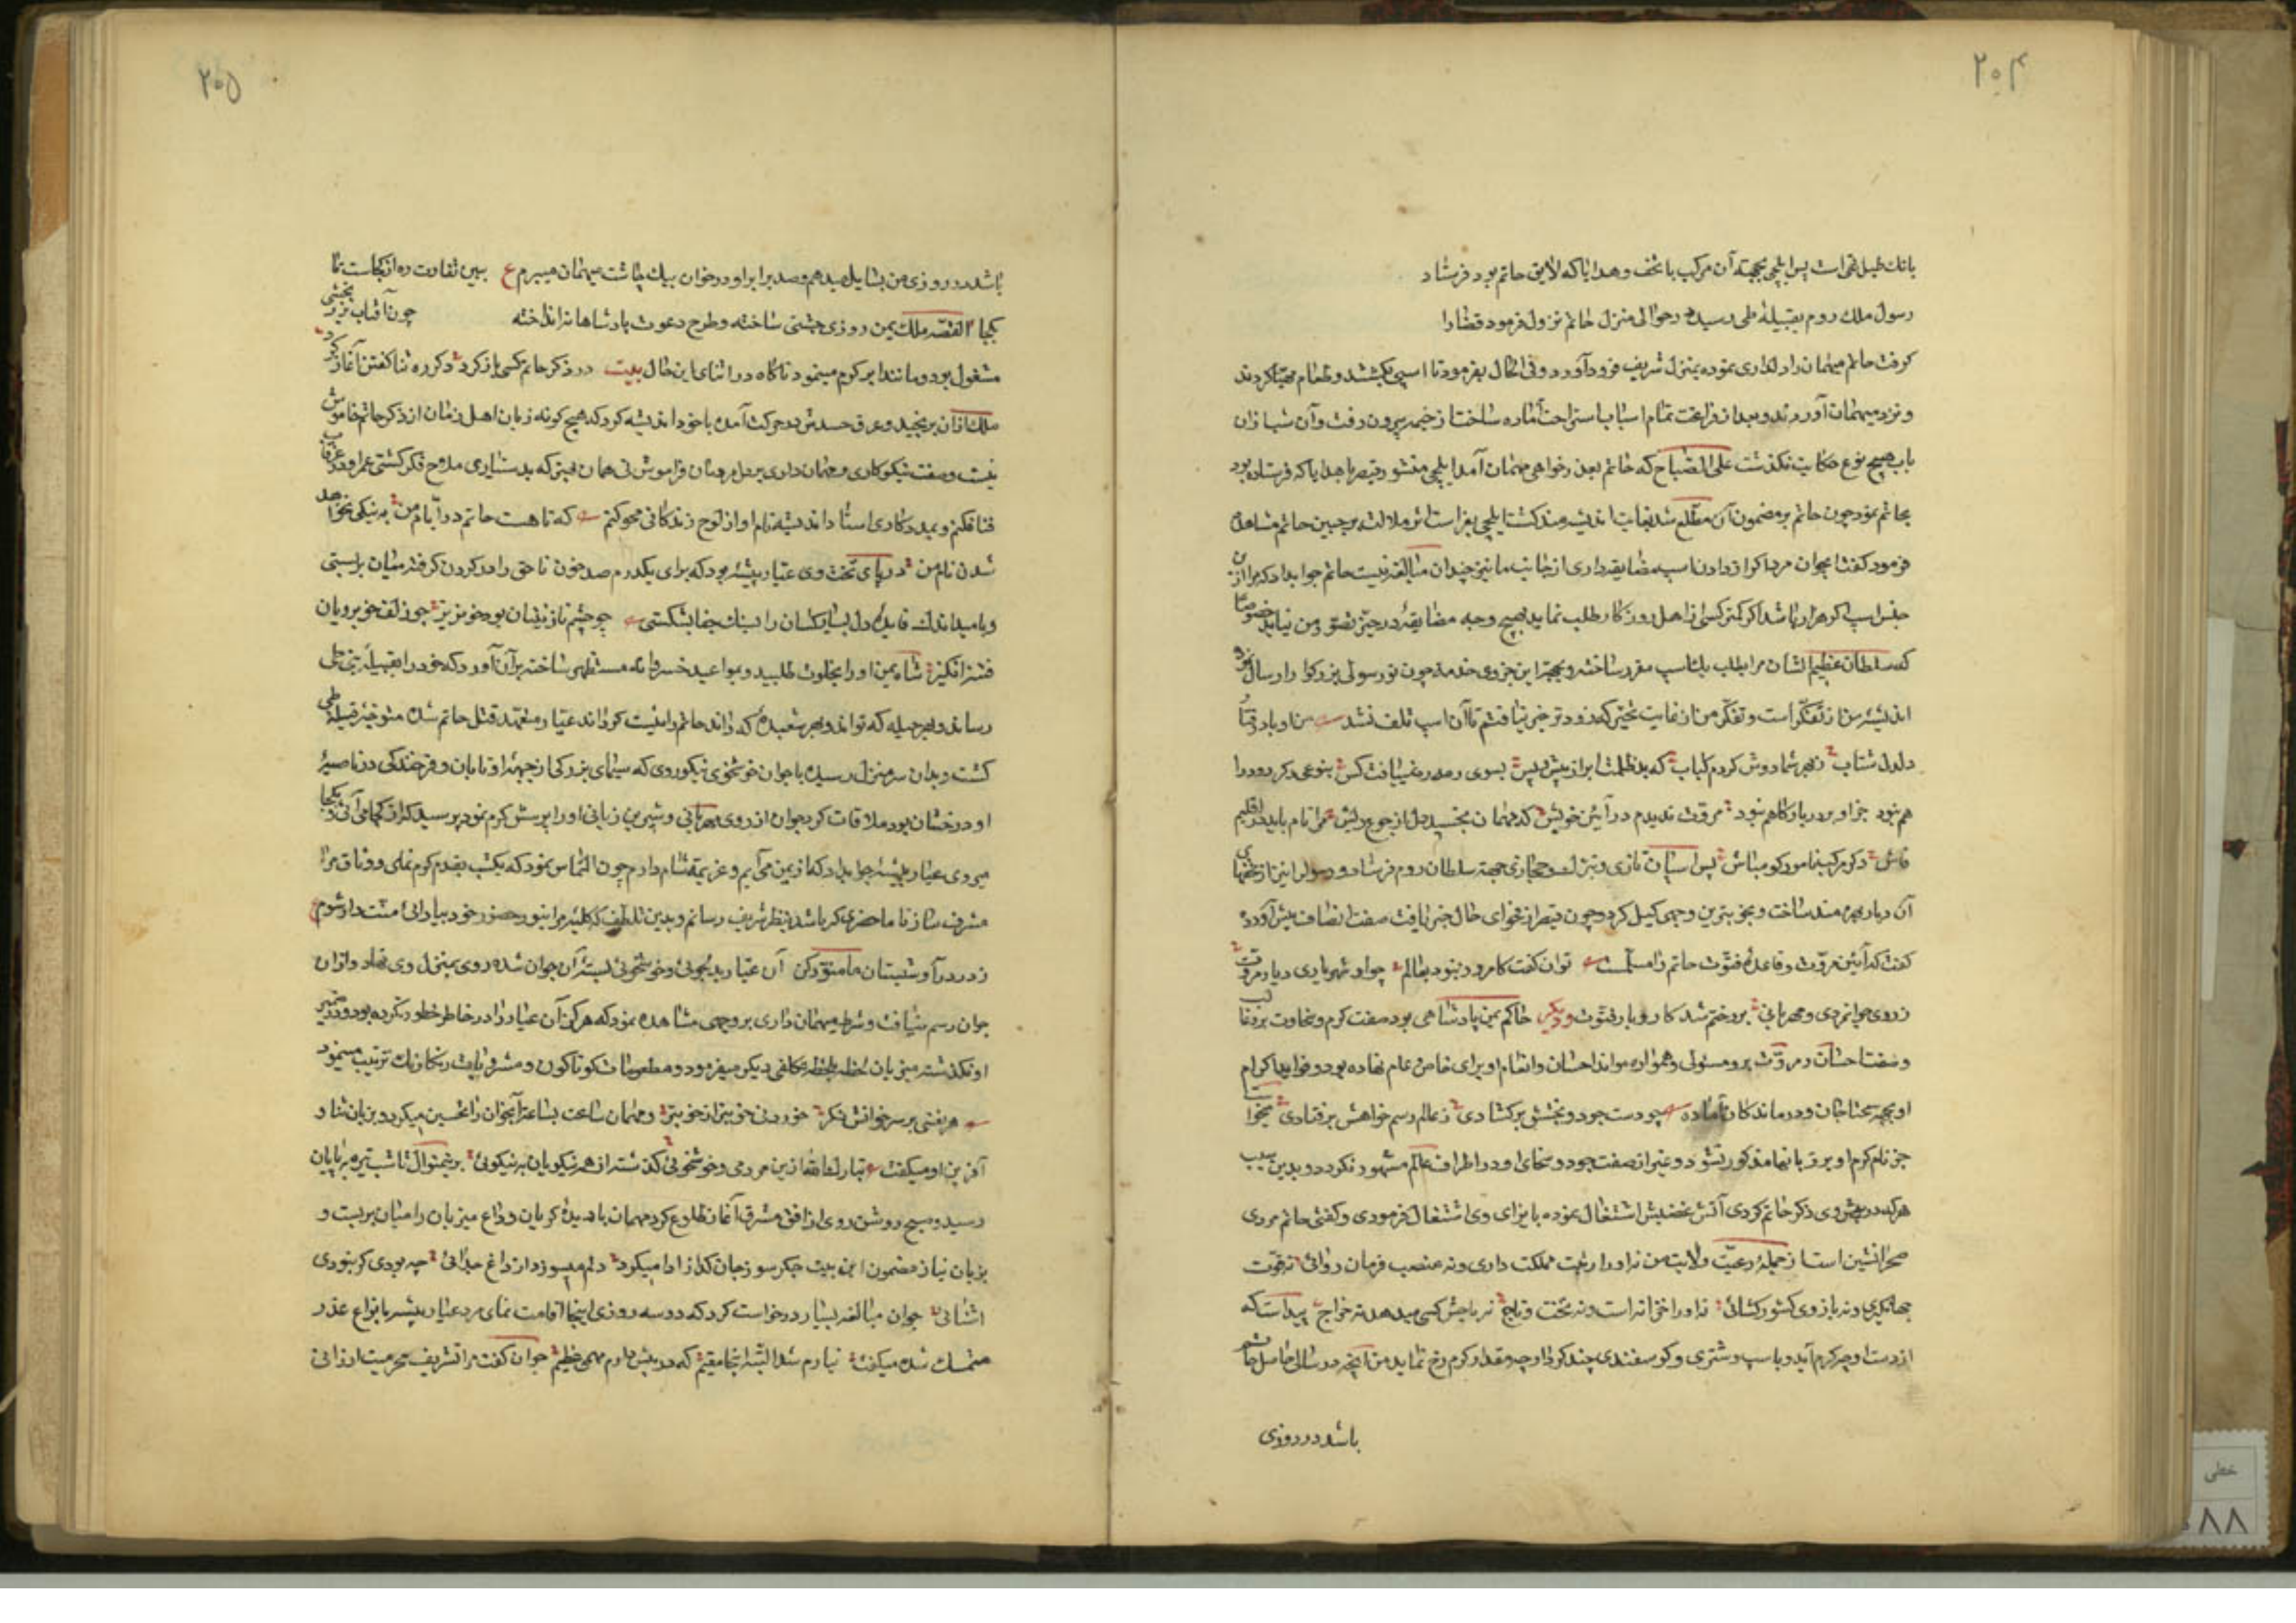 ۲۰۴
بانك طبل غمرا است پس ایلچی بجهته آن مرکب با تحف و هدایا که لایق حاتم بود فرستاد
رسول ملك روم بقبیلهٔ طی رسیده در حوالی منزل حاتم نزول فرمود قضارا
کرفت حاتم میهمان را دلداری نموده بمنزل شریف فرود آورد و فی الحال بفرمود تا اسبی بکشتند و طعام مهیا کردند
و نزد میهمان آوردند و بعد از فراغت تمام اسباب استراحت آماده ساخت از خیمه بیرون رفت و آن شب از ان
باب هیچ نوع حکایت نکذشت علی الصباح که حاتم بعذر خواهی میهمان آمد ایلچی منشور قیصر با هدایا که فرستاده بود
بحاتم نمود چون حاتم بر مضمون آن مطلع شد بغایت اندیشه مند کشت ایلچی بفراست اثر ملالت بر جبین حاتم مشاهده
فرمود کفت ای جوان مرد اکر از دادن اسب مضایقه داری از جانب ما نیز چندان مبالغه نیست حاتم جواب داد که مرا از این
جنس اسب اکر هزار باشد اکر کمتر کسی از اهل روزکار طلب نماید بهیچ وجه مضایقه در حیز تصور من نیاید خصوصا
که سلطان عظیم الشان مرا بطلب یك اسب مقرر ساخته و بجهت این جزوی خدمت چون تو رسولی بزرکوار ارسال نمود
اندیشه من از تفکر است و تفکر من از غایت تحیر که زودتر خبر نیافتم تا آن اسب تلف نشد من او باد رفتار
دلدل شتاب ز بهر شما دوش کردم کباب که بد ظلمت ابر از پیش و پس بسوی رمه ره نمییافت کس بنوعی دکر رو و را
هم نبود جز او بر در بارکاهم نبود مروت ندیدم در آیین خویش که مهمان بخسبد دل از جوع ریش مرا نام باید در اقلیم
فاش دکر مرکب نامور کو مباش پس اسبان تازی و ترك و حجازی جهته سلطان روم فرستاد و رسول را نیز از تحفهای
آن دیار بهره مند ساخت و بخوبترین وجهی کسیل کرد و چون قیصر از فحوای حال خبر یافت صفت انصاف پیش آورده
کفت که آیین مروت و قاعدهٔ فتوت حاتم را مسلمست توان کفت کامروز نبود بعالم چو او شهریاری دیار مروت
ز روی جوانمردی و مهربانی بر و ختم شد کار و بار فتوت و دیکر حاکم یمن پادشاهی بود صفت کرم و سخاوت بر و غالب
و صفت احسان و مروت بر و مستولی و همواره موائد احسان و انعام او برای خاص و عام نهاده بود و فواید اکرام
او بجهته محتاجان و درماندکان آماده چو دست جود و بخشش بر کشادی ز عالم رسم خواهش بر فتادی میخواست
جز نام کرم او بر زبانها مذکور نشود و غیر از صفت جود و سخای او در اطراف عالم مشهور نکردد و بدین سبب
هر که در پیش وی ذکر حاتم کردی آتش غضبش اشتعال نموده بایذای وی اشتغال فرمودی و کفتی حاتم مردی
صحرا نشین است از جملهٔ رعیت ولایت من نه او را رتبت مملکت داری و نه منصب فرمان روائی نه قوت
جهانکیری و نه بازوی کشور کشائی نه او را خزانه است و نه تخت و تاج نه باجش کسی میدهد نه خراج پیداست که
از دست او چه کرم آید و باسب و شتری و کوسفندی چند کرد او چه مقدار کرم رخ نماید من آنچه در سالی حاصل حاتم
باشد در روزی
۲۰۵
باشد در روزی من بسایل میدهم و صد برابر او در خوان بیك چاشت میهمان میبرم ع ببین تفاوت ره از کجاست تا
بکجا القصه ملك یمن روزی جشنی ساخته و طرح دعوت پادشاهانه انداخته چون آفتاب بزر بخشی
مشغول بود و مانند ابر کرم مینمود ناکاه در اثنای این حال بیت در ذکر حاتم کسی باز کرد دکر ره ثنا کفتن آغاز کرد
ملك از آن برنجید و عرق حسدش بحرکت آمده با خود اندیشه کرد که هیچ کونه زبان اهل زمان از ذکر حاتم خاموش
نیست و صفت نیکوکاری و مهمان داری بر دل مردمان فراموش نی همان بهتر که بدستیاری ملاح فکر کشتی عمر او در غرقاب
فنا فکنم و بمددکاری استاد اندیشه نام او از لوح زندکانی محو کنم که تا هست حاتم در ایام من به نیکی نخواهد
شدن نام من در پای تخت وی عیار پیشهٔ بود که برای یکدرم صد خون ناحق را در کردن کرفته میان ببستی
و بامید اندك فایدهٔ دل بسیار کسان را بسنك جفا بشکستی چو چشم نازنینان بود خونریز چو زلف خوبرویان
فتنه انکیز شاه یمن او را بخلوت طلبید و بمواعید خسروانه مستظهر ساخته بر آن آورد که خود را بقبیلهٔ بنی طی
رساند و بهر حیله که تواند و بهر شعبدهٔ که داند حاتم را نیست کرداند عیار متعهد قتل حاتم شده متوجه قبیلهٔ طی
کشت و بدان سر منزل رسیده با جوان خوشخوی نیکو روی که سیمای بزرکی از جبههٔ او تابان و فرخندکی در ناصیهٔ
او درخشان بود ملاقات کرد جوان از روی مهربانی و شیرین زبانی او را پرسش کرم نمود پرسید که از کجا می آئی و بکجا
میروی عیار پیشه جواب داد که از یمن می آیم و عزیمت شام دارم جوان التماس نمود که یکشب بقدم کرم نمای و وثاق مرا
مشرف ساز تا ما حضری که باشد بنظر شریف رسانم و بدین تلطف که کلبه مرا بنور حضور خود بیارائی منت دار شوم ع
ز در درآ و شبستان ما منور کن آن عیار بدلجوئی و خوشخوئی بستهٔ آن جوان شده روی بمنزل وی نهاد و از ان
جوان رسم ضیافت و شرط میهمان داری بر وجهی مشاهده نمود که هرکز آن عیار را در خاطر خطور نکرده بود و در ضمیر
او نکذشته میزبان لحظه بلحظه تکلفی دیکر میفرمود و مطعومات کوناکون و مشروبات رنکارنك ترتیب مینمود
هر نعمتی بر سر خوانش نکر خوردنی خوبتر از خوبتر و مهمان ساعت بساعت آنجوان را تحسین میکرد و بزبان ثنا و
آفرین او میکفت تبارك الله از این مردمی و خوشخوئی کذشته از همه نیکویان به نیکوئی برینمنوال تا شب تیره بپایان
رسید و صبح روشن روی از افق مشرق آغاز طلوع کرد مهمان با دیدهٔ کریان وداع میزبان را میان بربست و
بزبان نیاز مضمون این بیت جکر سوز جان کداز ادا میکرد دلم میسوزد از داغ جدائی چه بودی کر نبودی
اشنائی جوان مبالغه بسیار درخواست کرد که دو سه روزی اینجا اقامت نمای مرد عیار پیشه بانواع عذر
متمسك شده میکفت نیارم شد البته اینجا مقیم که در پیش دارم مهمی عظیم جوان کفت مرا تشریف محرمیت ارزانی
خطی
۸۸